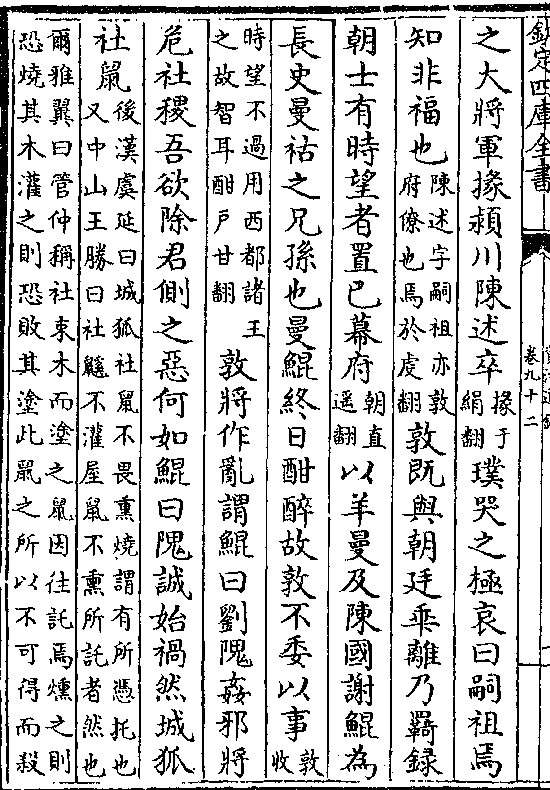 欽定四庫全書
卷九十二
之大將軍掾潁川陳述卒掾于絹翻璞哭之極哀曰嗣祖焉
知非福也陳述字嗣祖亦敦府僚也焉於虔翻敦既與朝廷乖離乃羈録
朝士有時望者置已幕府朝直遥翻以羊曼及陳國謝鯤為
長史曼祜之兄孫也曼鯤終日酣醉故敦不委以事敦收
時望不過用西都諸王之故智耳酣戸甘翻敦將作亂謂鯤曰劉隗姦邪將
危社稷吾欲除君側之惡何如鯤曰隗誠始禍然城狐
社鼠後漢虞延曰城狐社鼠不畏熏燒謂有所憑托也又中山王勝曰社鼷不灌屋鼠不熏所託者然也
爾雅翼曰管仲稱社束木而塗之鼠因往託焉燻之則恐燒其木灌之則恐敗其塗此鼠之所以不可得而殺